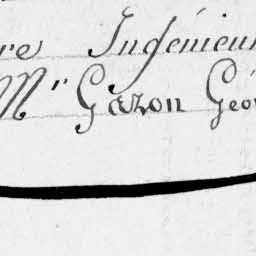 re Ingénieur
Mr Gazon Géo